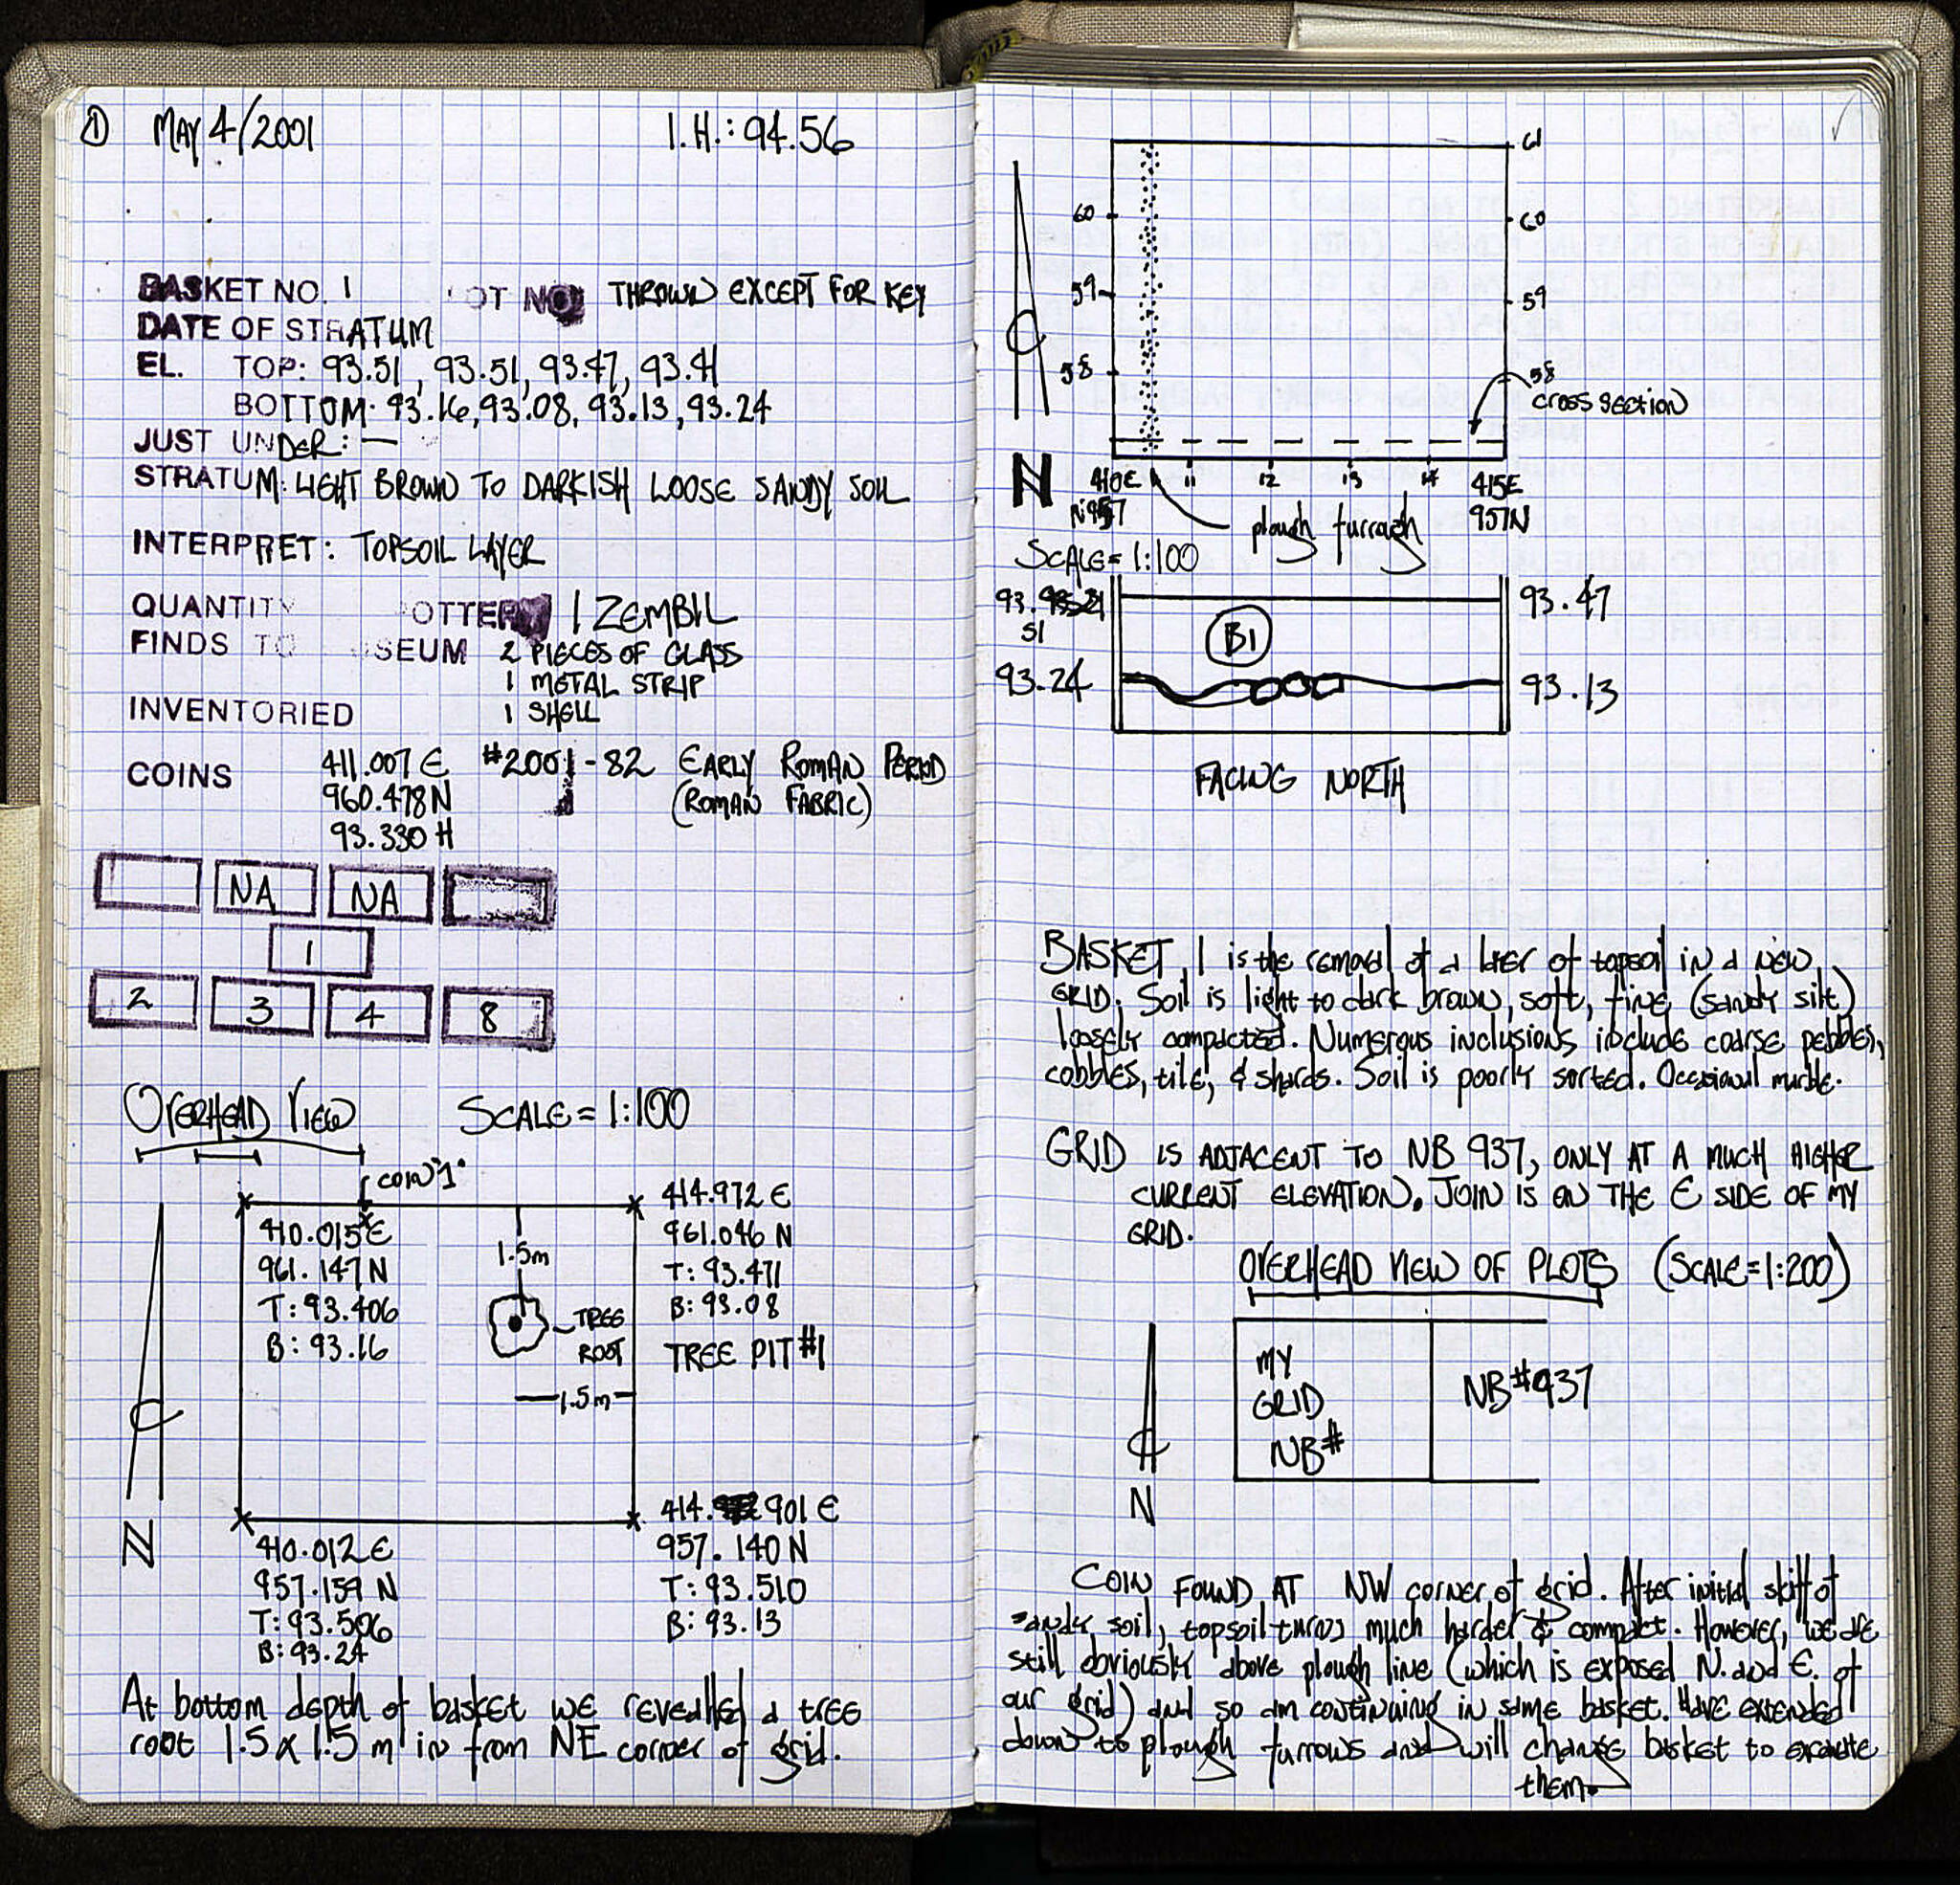 ① MAY 4/2001 I.H.: 94.56
BASKET NO. 1 OT NO THROWN EXCEPT FOR KEY
DATE OF STRATUM
EL. TOP: 93.51, 93.51, 93.47, 93.41
BOTTOM: 93.16, 93.08, 93.13, 93.24
JUST UNDER: —
STRATUM: LIGHT BROWN TO DARKISH LOOSE SANDY SOIL
INTERPRET: TOPSOIL LAYER
QUANTITY OTTERY 1 ZEMBIL
FINDS TO SEUM 2 PIECES OF GLASS
1 METAL STRIP
INVENTORIED 1 SHELL
COINS 411.007 E #2001-82 EARLY ROMAN PERIOD
960.478 N (ROMAN FABRIC)
93.330 H
NA NA
1
2 3 4 8
OVERHEAD VIEW SCALE = 1:100
COIN "1"
414.972 E
961.046 N
T: 93.471
B: 93.08
TREE PIT #1
410.015 E
961.147 N
T: 93.406
B: 93.16
1.5m
TREE
ROOT
1.5m
N
410.012 E
957.159 N
T: 93.506
B: 93.24
414.901 E
957.140 N
T: 93.510
B: 93.13
At bottom depth of basket we revealled a tree
root 1.5 x 1.5 m in from NE corner of grid.
61
60 60
59 59
58 58
cross section
N 410E 11 12 13 14 415E
N957 957N
plough furrough
SCALE = 1:100
93. 93.47
51
B1
93.24 93.13
FACING NORTH
BASKET 1 is the removal of a layer of topsoil in a new
GRID. Soil is light to dark brown, soft, fine (sandy silt)
loosely compacted. Numerous inclusions include coarse pebbles,
cobbles, tile, & shards. Soil is poorly sorted. Occasional marble.
GRID IS ADJACENT TO NB 937, ONLY AT A MUCH HIGHER
CURRENT ELEVATION. JOIN IS ON THE E SIDE OF MY
GRID.
OVERHEAD VIEW OF PLOTS (SCALE=1:200)
MY
GRID
NB#
NB#937
N
COIN FOUND AT NW corner of grid. After initial skiff of
sandy soil, topsoil turns much harder & compact. However, we are
still obviously above plough line (which is exposed N. and E. of
our grid) and so am continuing in same basket. Have extended
down to plough furrows and will change basket to excavate
them.